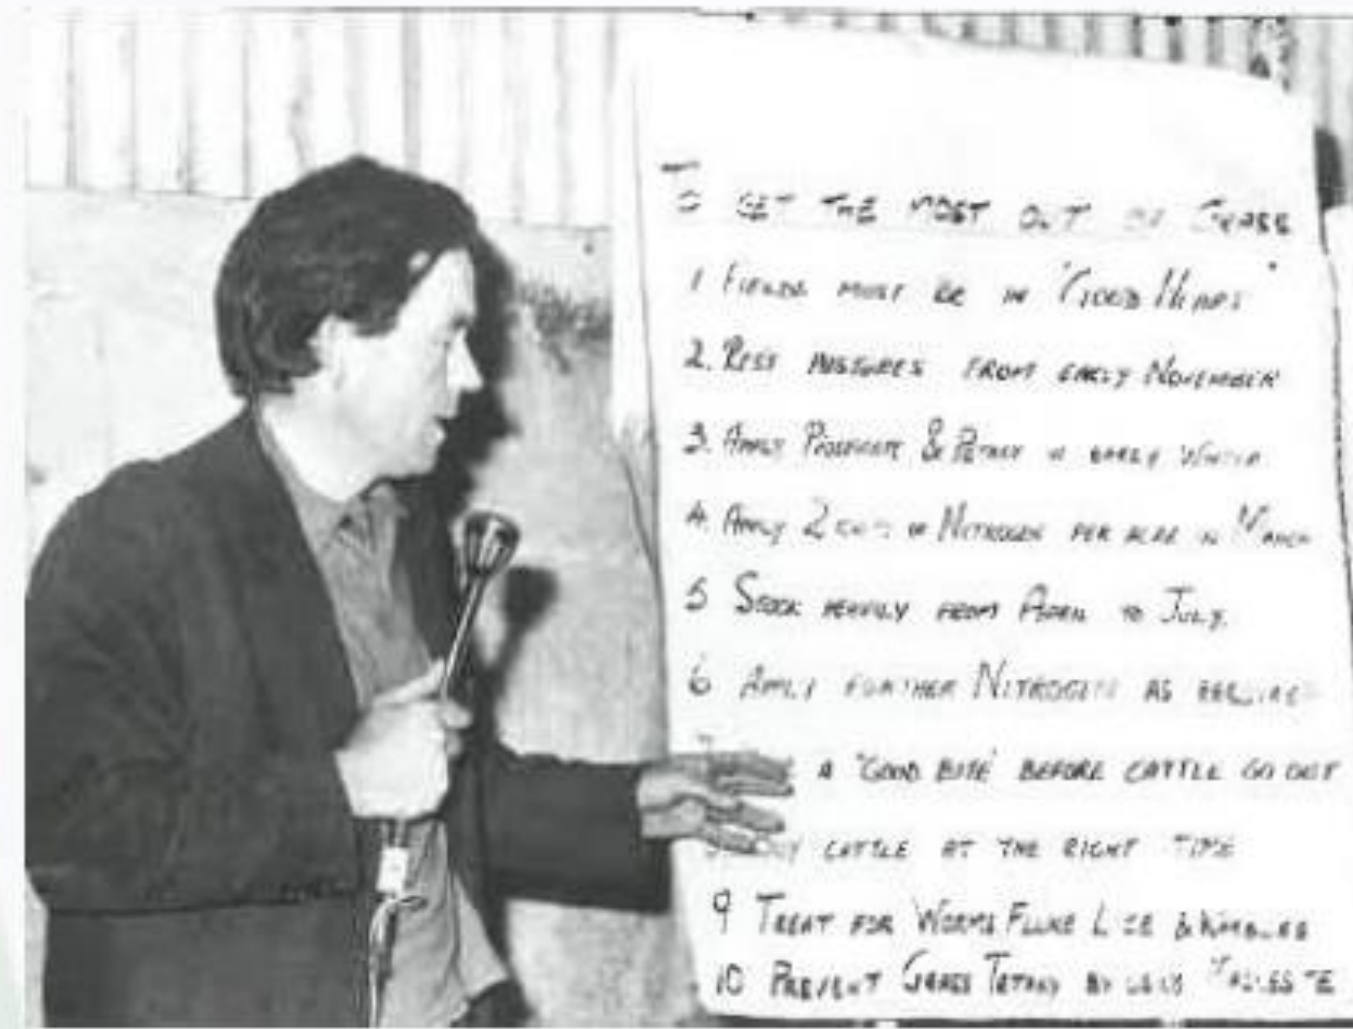 TO GET THE MOST OUT OF GRASS
1 FIELDS MUST BE IN "GOOD HEART"
2. REST PASTURES FROM EARLY NOVEMBER
3. APPLY PHOSPHATE & POTASH IN EARLY WINTER
4. APPLY 2 OF NITROGEN PER ACRE IN MARCH
5 STOCK HEAVILY FROM APRIL TO JULY.
6 APPLY FURTHER NITROGEN AS REQUIRED
A 'GOOD BITE' BEFORE CATTLE GO OUT
CATTLE AT THE RIGHT TIME
9 TREAT FOR WORMS FLUKE LICE & WARBLES
10 PREVENT GRASS TETANY BY